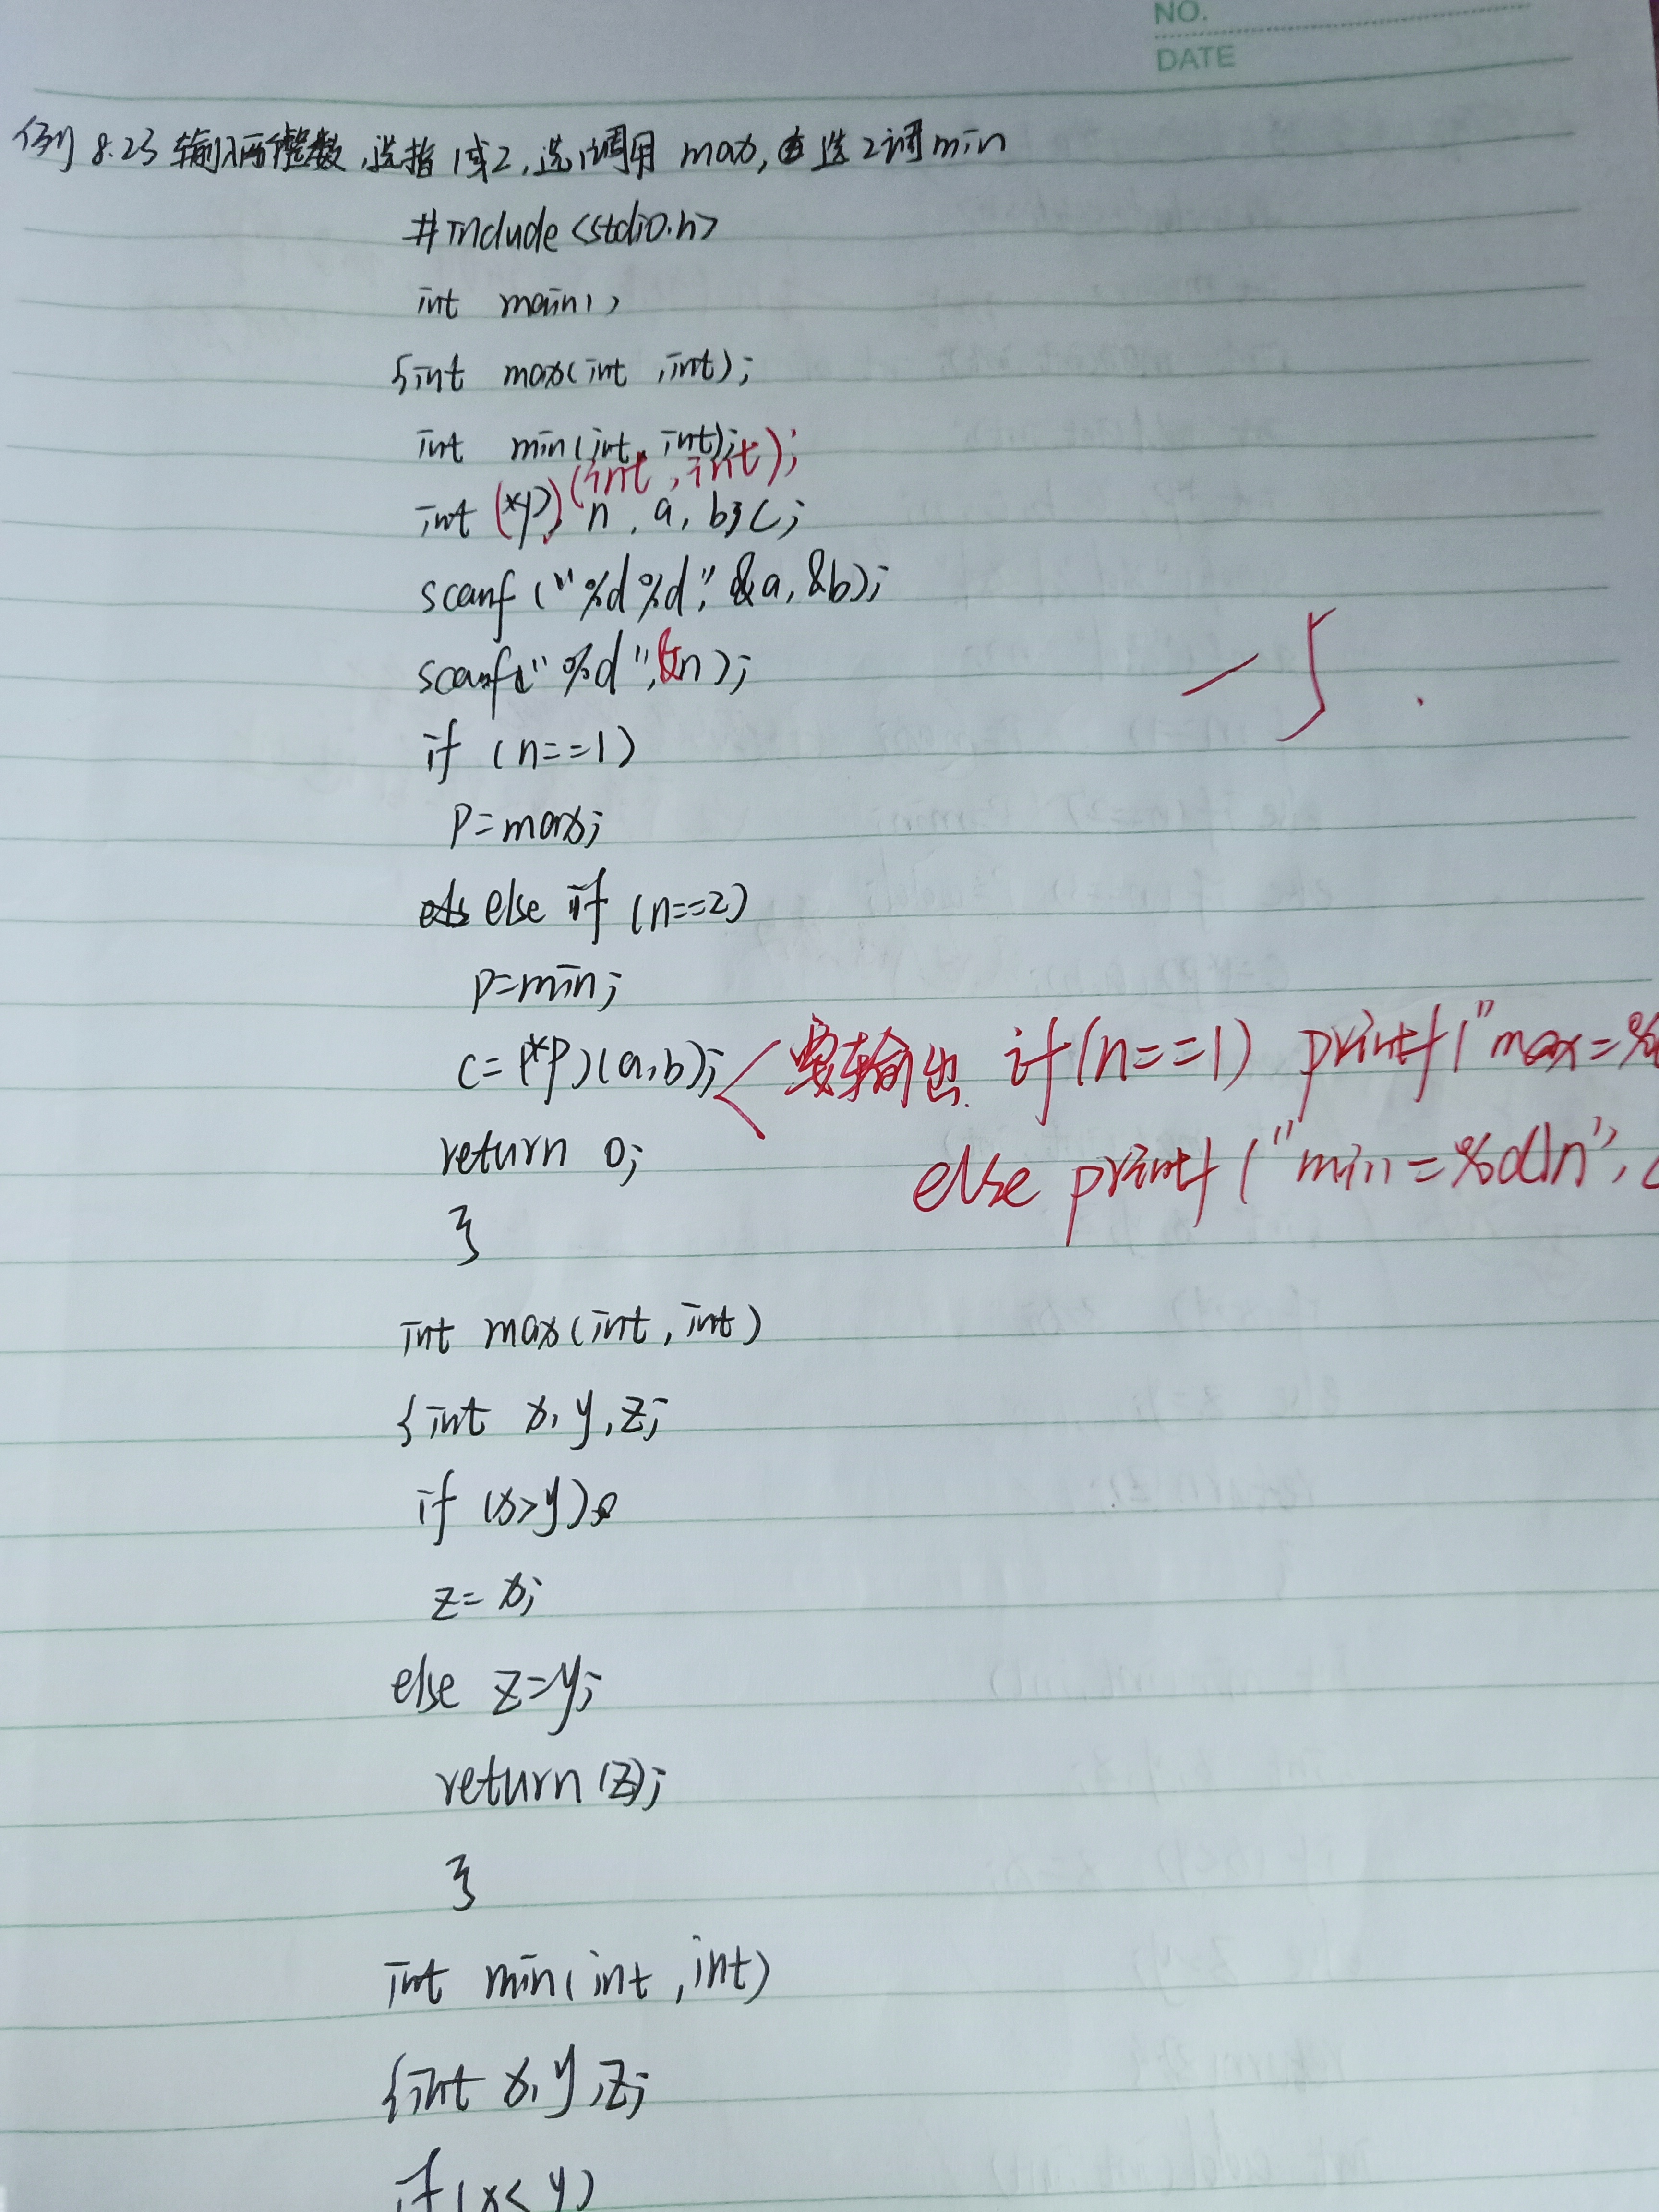 NO.
DATE
例 8.23 输入两个整数,选择 1或2,选1调用 max, 选2调min
#include <stdio.h>
int main()
{int max(int ,int);
int min(int, int);
(int ,int);
int (*p), n, a, b, c;
scanf ("%d%d", &a, &b);
scanf("%d",&n);
if (n==1)
P=max;
else if (n==2)
P=min;
c=(*p)(a,b); 要输出 if(n==1) printf("max=%
return 0;
else printf("min=%d\n",
}
int max(int,int)
{int x, y, z;
if (x>y)
z= x;
else z=y;
return(z);
}
int min(int ,int)
{int x, y, z;
if(x< y)